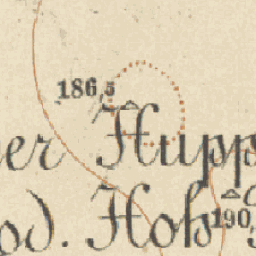 186,5
er Hupp
od. Hoh
190,